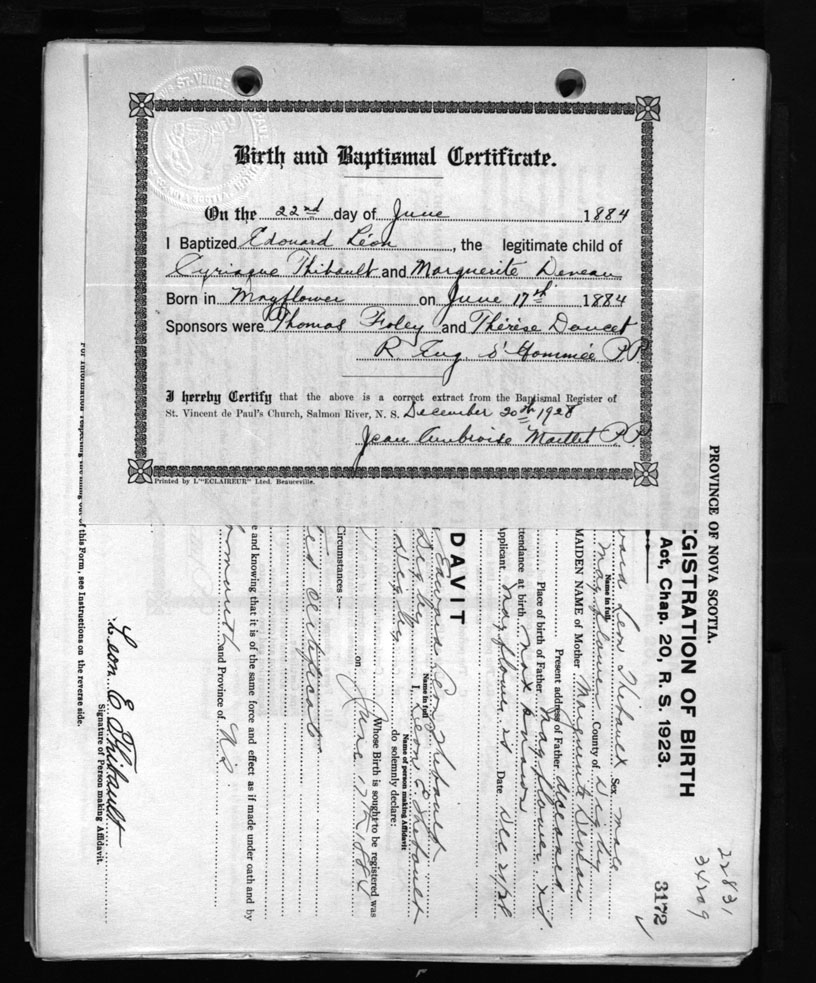 Birth and Baptismal Certificate.
On the 22nd day of June 1884
I Baptized Edouard Léon, the legitimate child of
Cyriaque Thibault and Marguerite Deveau
Born in Mayflower on June 17th 1884
Sponsors were Thomas Foley and Thérèse Doucet
R Eug. d'Hommée P.P.
I hereby Certify that the above is a correct extract from the Baptismal Register of
St. Vincent de Paul's Church, Salmon River, N. S. December 20th 1928
Jean Ambroise Maillet P.P.
Printed by L'"ECLAIREUR" Lted. Beauceville.
PROVINCE OF NOVA SCOTIA.
GISTRATION OF BIRTH
Act, Chap. 20, R. S. 1923.
22831
34209
3172
ward Leon Thibault Sex male
Name in full
Mayflower County of Digby
MAIDEN NAME of Mother Marguerite Deveau
Present address of Father deceased
Place of birth of Father Mayflower N.S.
ttendance at birth
pplicant Mayflower N.S. Date Dec 21/28
DAVIT
I, Leon E Thibault
Name of person making Affidavit
do solemnly declare:
Edward Leon Thibault
Name in full
Digby
Digby
Whose Birth is sought to be registered was
on June 17th 1884
Circumstances :—
ed certificate
e and knowing that it is of the same force and effect as if made under oath and by
and Province of N.S.
Leon E Thibault
Signature of Person making Affidavit.
of this Form, see Instructions on the reverse side.